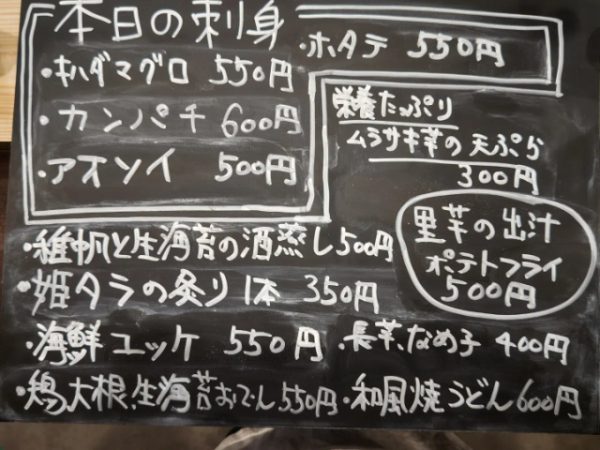 本日の刺身
・ホタテ 550円
・キハダマグロ 550円
・カンパチ 600円
・アオソイ 500円
栄養たっぷり
ムラサキ芋の天ぷら
300円
里芋の出汁
ポテトフライ
500円
・稚帆と生海苔の酒蒸し500円
・姫タラの炙り1本 350円
・海鮮ユッケ 550円
・長芋、なめ子 400円
・鶏、大根、生海苔おでん550円
・和風焼うどん600円